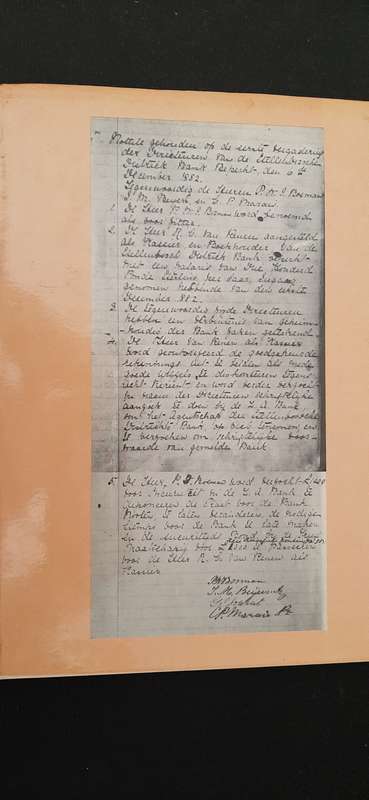 Notule gehouden op de eerste vergadering
der Directeuren van de Stellenbossche
Distriekt Bank Beperkt, den 6de
December 1882.
Tegenwoordig de Heeren P. W. J. Bosman
J. M. Beyers en G. P. Marais
1. De Heer P. W. J. Bosman word benoemd
als voorzitter.
2. De Heer R. G. van Reenen aangesteld
als Kassier en Boekhouder van de
Stellenbosch Distrekt Bank
met een salaris van Drie Honderd
Ponds Sterling per jaar, ingang
genomen hebbende van den eerste
December 1882.
3. De tegenwoordig zynde Directeuren
hebben een verbintenis van geheim-
houding der Bank zaken geteekend.
4. De Heer van Reenen als Kassier
word geautoriseerd de goedgekeurde
rekenings uit te betalen als mede
goede wissels te diskonteeren tegen
acht Percent en word verder verzocht
in naam der Directeuren schriftelyke
aanzoek te doen by de S. A. Bank
om het agentschap der Stellenbossche
Distriekts Bank op zich te nemen en
te verzoeken om schriftelyke voor-
waarde van gemelden Bank
5. De Heer P. J. Bosman word verzocht
voor in de S. A. Bank te
deponeeren de Plaat voor de Bank
Noten te laten veranderen de nodigen
voor de Bank te laten maken
en de securiteits
voor £1000 te passeeren
voor de Heer R. G. van Reenen als
Kassier
Bosman
J. M. Beyers
G. P. Marais